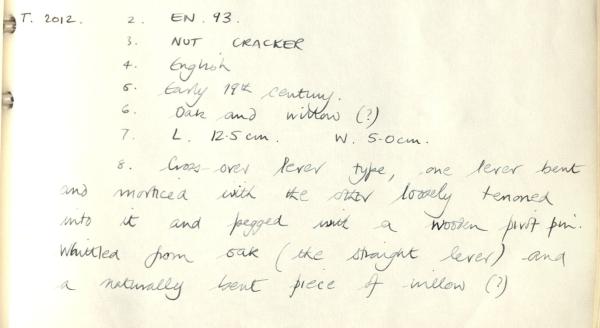 T. 2012. 2. EN. 93.
3. NUT CRACKER
4. English
5. Early 19th century.
6. Oak and willow (?)
7. L. 12.5cm. W. 5.0cm.
8. Cross-over lever type, one lever bent
and morticed with the other loosely tenoned
into it and pegged with a wooden pivot pin.
Whittled from oak (the straight lever) and
a naturally bent piece of willow (?)